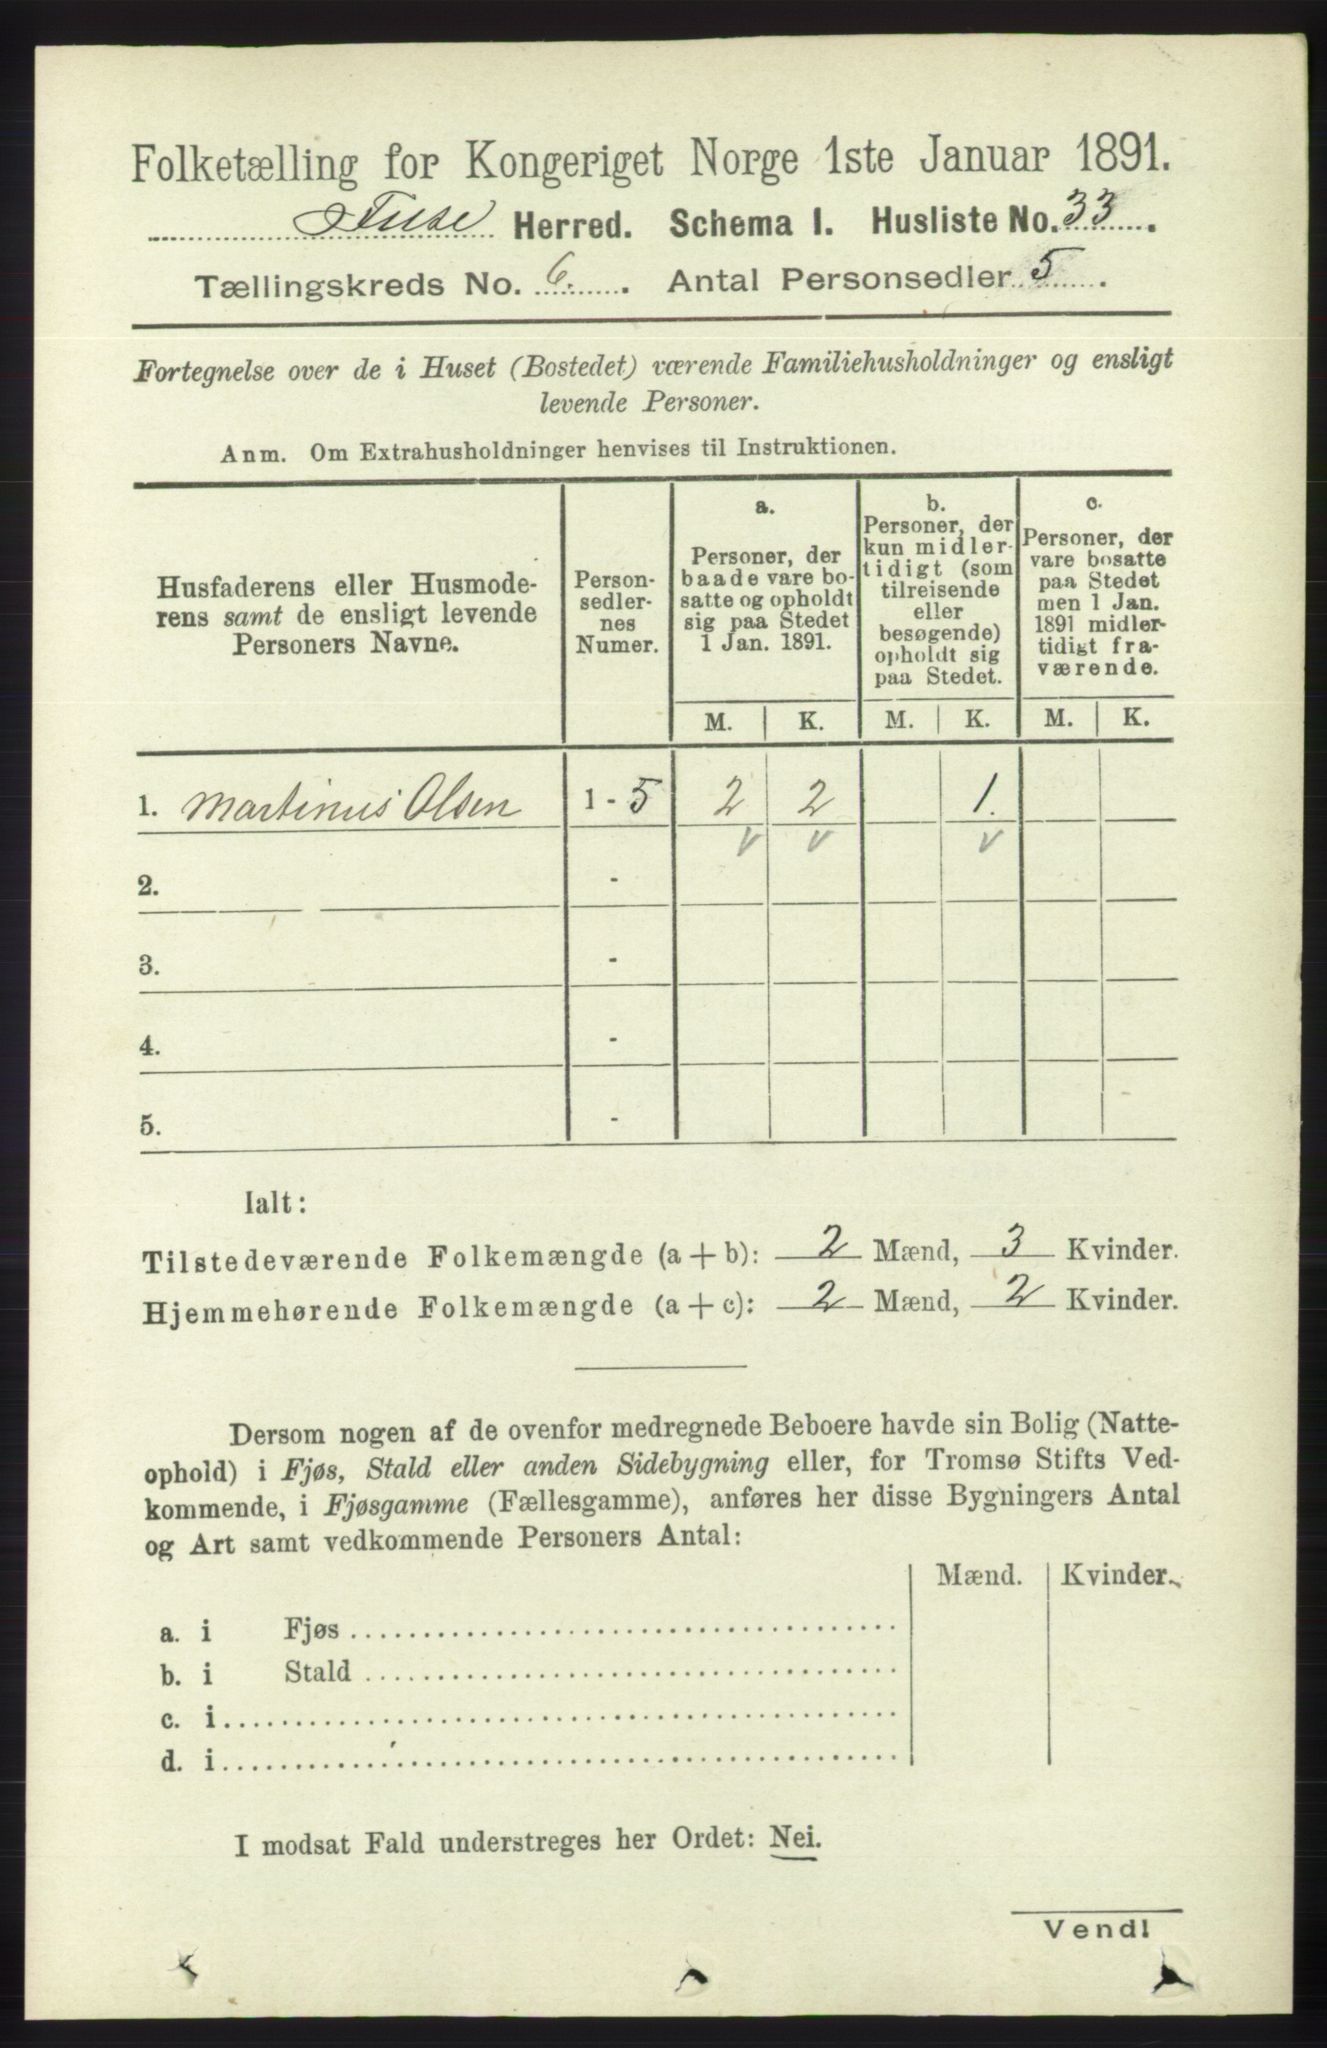 Folketælling for Kongeriget Norge 1ste Januar 1891.
Fuse Herred. Schema I. Husliste No. 33.
Tællingskreds No. 6. Antal Personsedler 5.
Fortegnelse over de i Huset (Bostedet) værende Familiehusholdninger og ensligt
levende Personer.
Anm. Om Extrahusholdninger henvises til Instruktionen.
Husfaderens eller Husmode-
rens samt de ensligt levende
Personers Navne.
Person-
sedler-
nes
Numer.
a.
Personer, der
baade vare bo-
satte og opholdt
sig paa Stedet
1 Jan. 1891.
b.
Personer, der
kun midler-
tidigt (som
tilreisende
eller
besøgende)
opholdt sig
paa Stedet.
c.
Personer, der
vare bosatte
paa Stedet
men 1 Jan.
1891 midler-
tidigt fra-
værende.
M. K. M. K. M. K.
1. Martinus Olsen 1 - 5 2 2 1.
v v v
2. -
3. -
4. -
5. -
Ialt:
Tilstedeværende Folkemængde (a + b): 2 Mænd, 3 Kvinder.
Hjemmehørende Folkemængde (a + c): 2 Mænd, 2 Kvinder.
Dersom nogen af de ovenfor medregnede Beboere havde sin Bolig (Natte-
ophold) i Fjøs, Stald eller anden Sidebygning eller, for Tromsø Stifts Ved-
kommende, i Fjøsgamme (Fællesgamme), anføres her disse Bygningers Antal
og Art samt vedkommende Personers Antal:
Mænd. Kvinder.
a. i Fjøs
b. i Stald
c. i
d. i
I modsat Fald understreges her Ordet: Nei.
Vend!